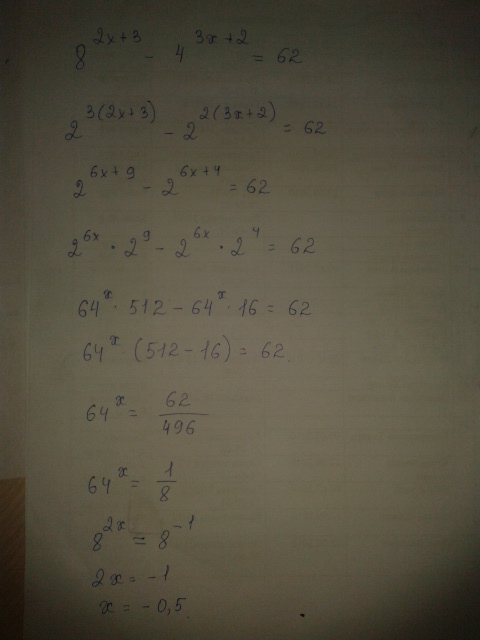 8^(2x+3) - 4^(3x+2) = 62
2^(3(2x+3)) - 2^(2(3x+2)) = 62
2^(6x+9) - 2^(6x+4) = 62
2^(6x) · 2^9 - 2^(6x) · 2^4 = 62
64^x · 512 - 64^x · 16 = 62
64^x · (512 - 16) = 62.
64^x = 62/496
64^x = 1/8
8^(2x) = 8^(-1)
2x = -1
x = -0,5.